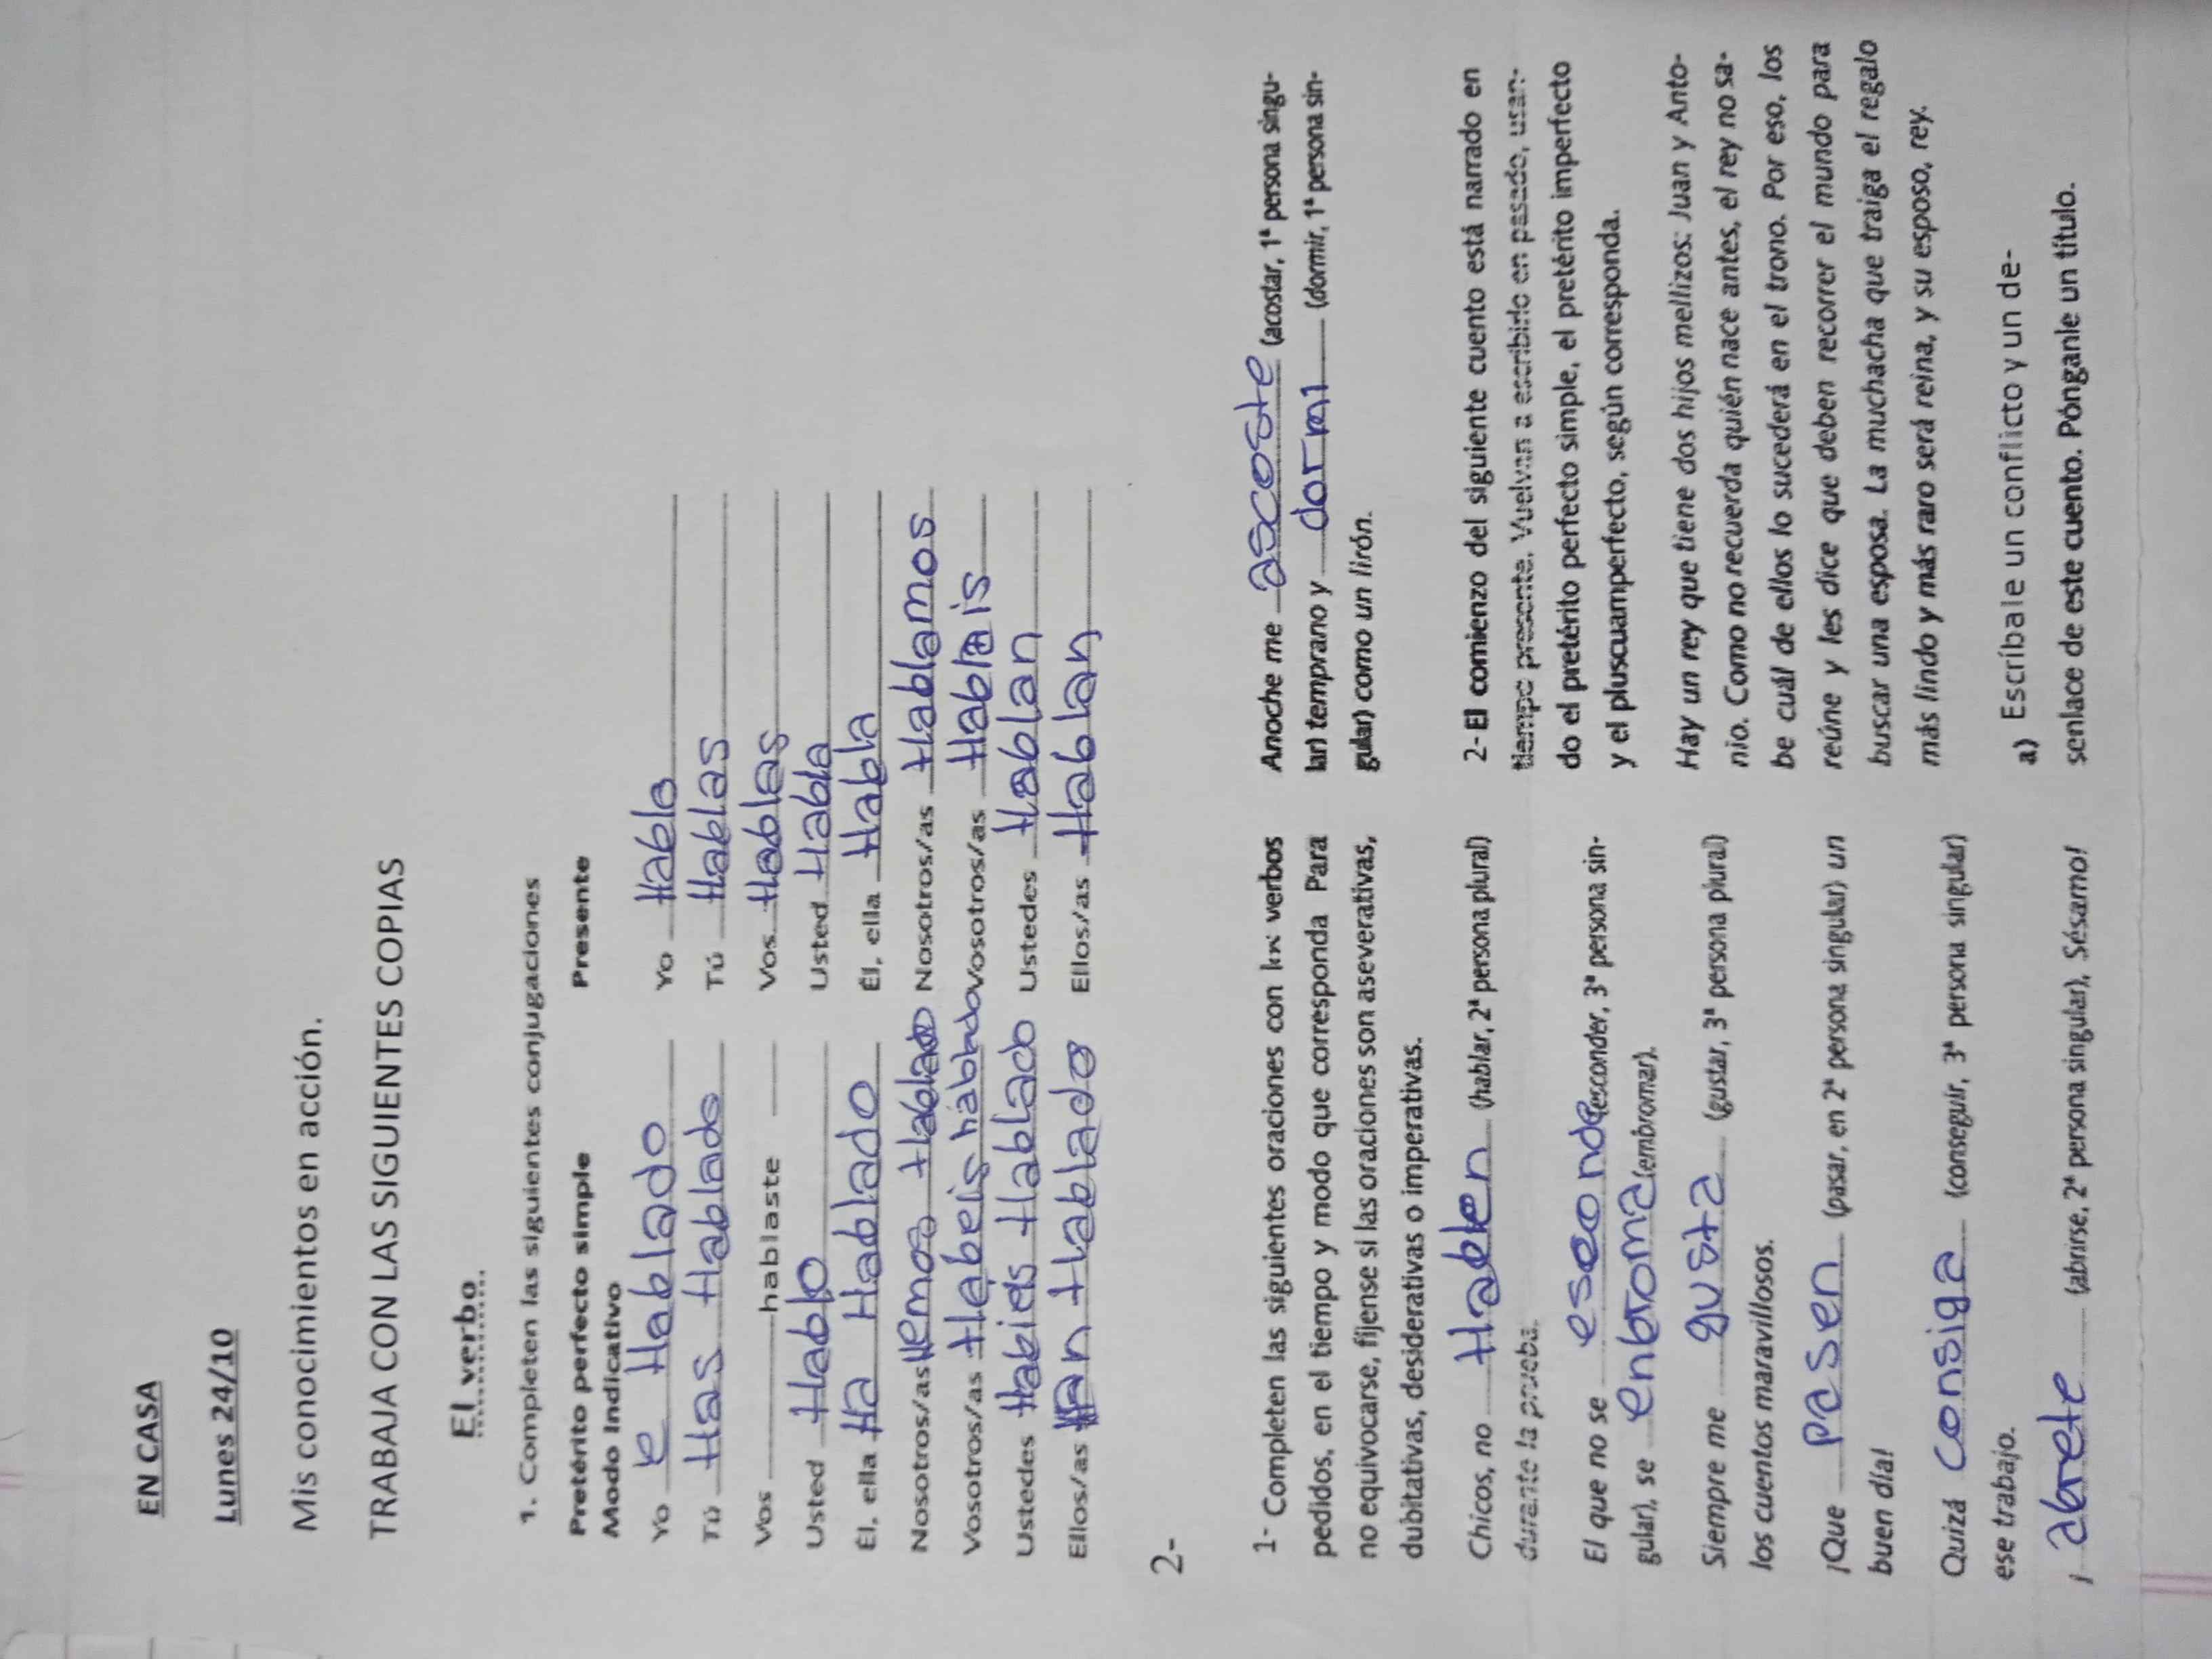 EN CASA
Lunes 24/10
Mis conocimientos en acción.
TRABAJA CON LAS SIGUIENTES COPIAS
El verbo
1. Completen las siguientes conjugaciones
Pretérito perfecto simple
Modo Indicativo
Yo e Hablado
Tú Has Hablado
Vos hablaste
Usted Hablo
Él, ella Ha Hablado
Nosotros/as Hemos Hablado
Vosotros/as Habeis hablado
Ustedes Habies Hablado
Ellos/as Han Hablado
Presente
Yo Hablo
Tú Hablas
Vos Hablas
Usted Habla
Él, ella Habla
Nosotros/as Hablamos
Vosotros/as Hablais
Ustedes Hablan
Ellos/as Hablan
2-
1- Completen las siguientes oraciones con los verbos
pedidos, en el tiempo y modo que corresponda Para
no equivocarse, fíjense si las oraciones son aseverativas,
dubitativas, desiderativas o imperativas.
Chicos, no Hablen (hablar, 2ª persona plural)
durante la prueba.
El que no se esconde (esconder, 3ª persona sin-
gular), se enbroma (embromar).
Siempre me gusta (gustar, 3ª persona plural)
los cuentos maravillosos.
¡Que pasen (pasar, en 2ª persona singular) un
buen día!
Quizá consiga (conseguir, 3ª persona singular)
ese trabajo.
¡ abrete (abrirse, 2ª persona singular), Sésamo!
Anoche me ascoste (acostar, 1ª persona singu-
lar) temprano y dormi (dormir, 1ª persona sin-
gular) como un lirón.
2- El comienzo del siguiente cuento está narrado en
tiempo presente. Vuelvan a escribirlo en pasado, usan-
do el pretérito perfecto simple, el pretérito imperfecto
y el pluscuamperfecto, según corresponda.
Hay un rey que tiene dos hijos mellizos: Juan y Anto-
nio. Como no recuerda quién nace antes, el rey no sa-
be cuál de ellos lo sucederá en el trono. Por eso, los
reúne y les dice que deben recorrer el mundo para
buscar una esposa. La muchacha que traiga el regalo
más lindo y más raro será reina, y su esposo, rey.
a) Escríbale un conflicto y un de-
senlace de este cuento. Pónganle un título.